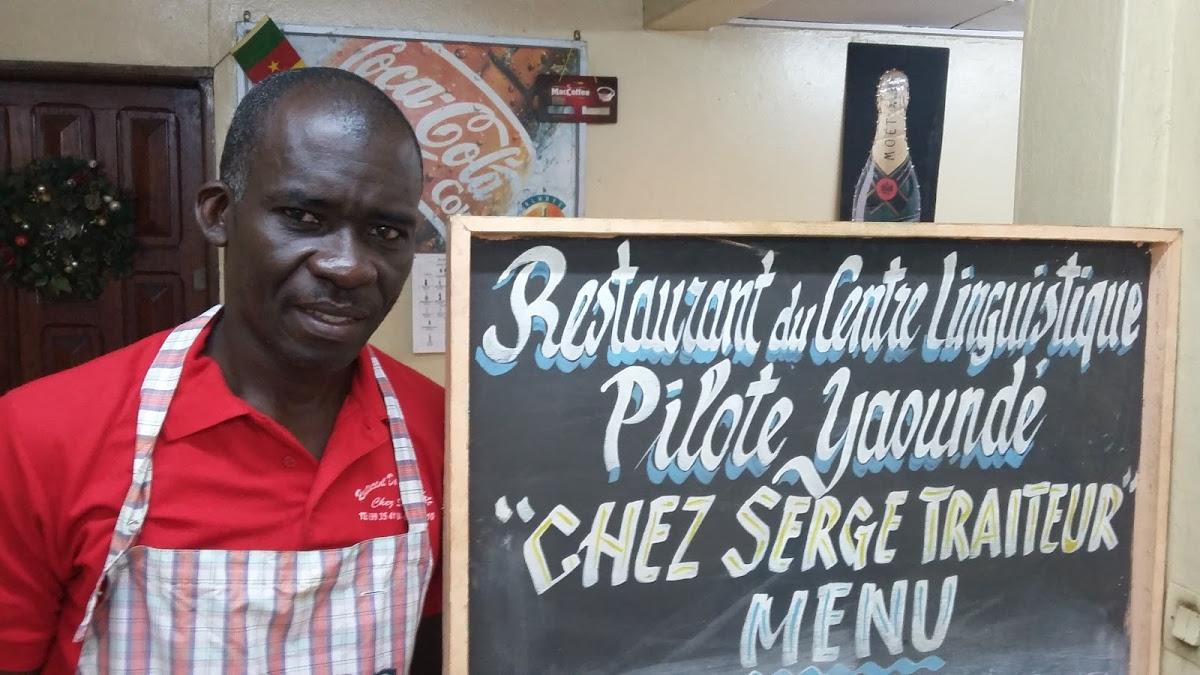 Coca-Cola
MacCoffee
MOËT
Restaurant du Centre Linguistique
Pilote Yaoundé
"CHEZ SERGE TRAITEUR"
MENU
Chez